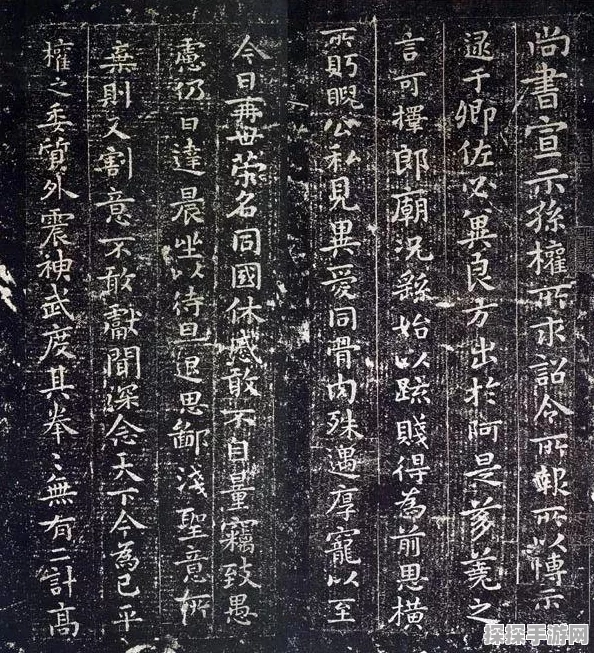 尚書宣示孫權所求詔令所報所以博示
逮于卿佐必冀良方出於阿是芻蕘之
言可擇郎廟況繇始以疏賤得為前恩橫
所眄睨公私見異愛同骨肉殊遇厚寵以至
今日再世榮名同國休慼敢不自量竊致愚
慮仍日達晨坐以待旦退思鄙淺聖意所
棄則又割意不敢獻聞深念天下今為已平
權之委質外震神武度其拳〻無有二計高
探探手游网